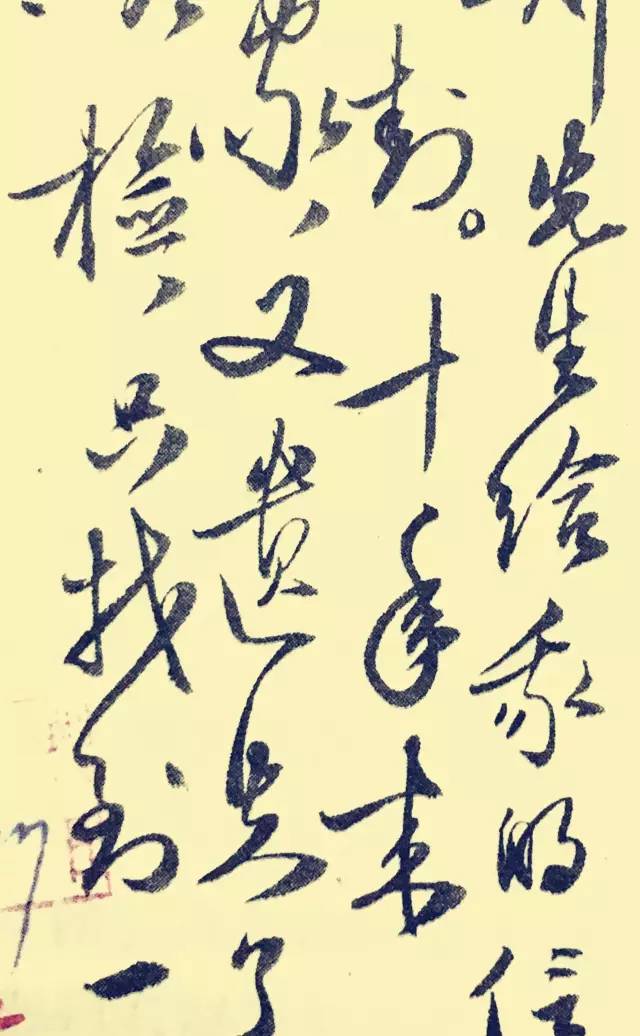 先生给我的信
封。十年来
家,又遗失了
检,只找到一